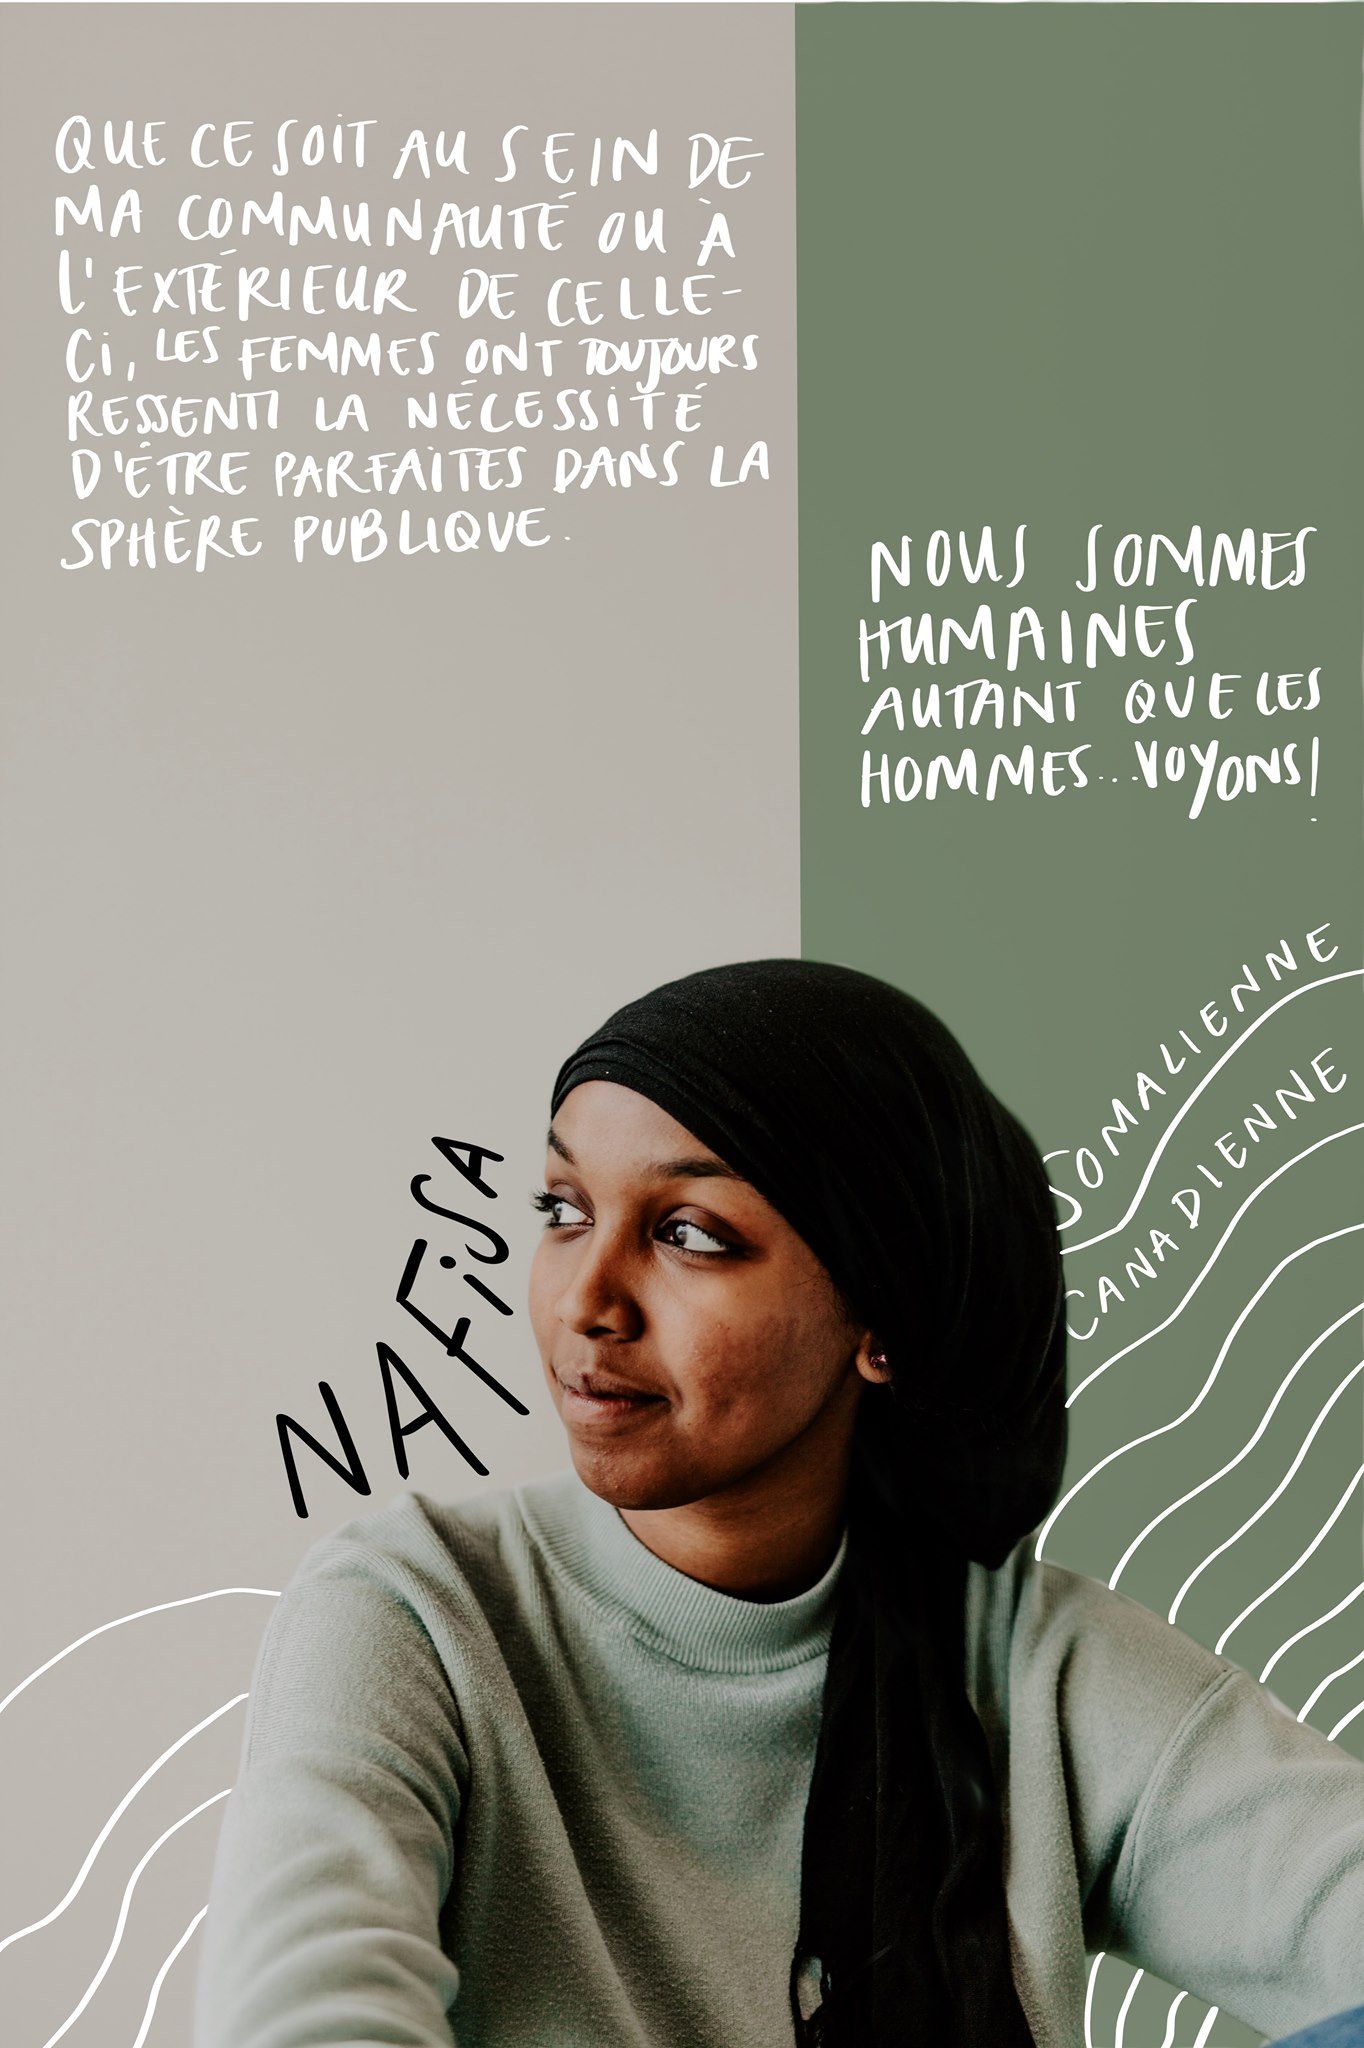 QUE CE SOIT AU SEIN DE
MA COMMUNAUTÉ OU À
L'EXTÉRIEUR DE CELLE-
CI, LES FEMMES ONT TOUJOURS
RESSENTI LA NÉCESSITÉ
D'ÊTRE PARFAITES DANS LA
SPHÈRE PUBLIQUE.
NOUS SOMMES
HUMAINES
AUTANT QUE LES
HOMMES...VOYONS!
SOMALIENNE
CANADIENNE
NAFISA